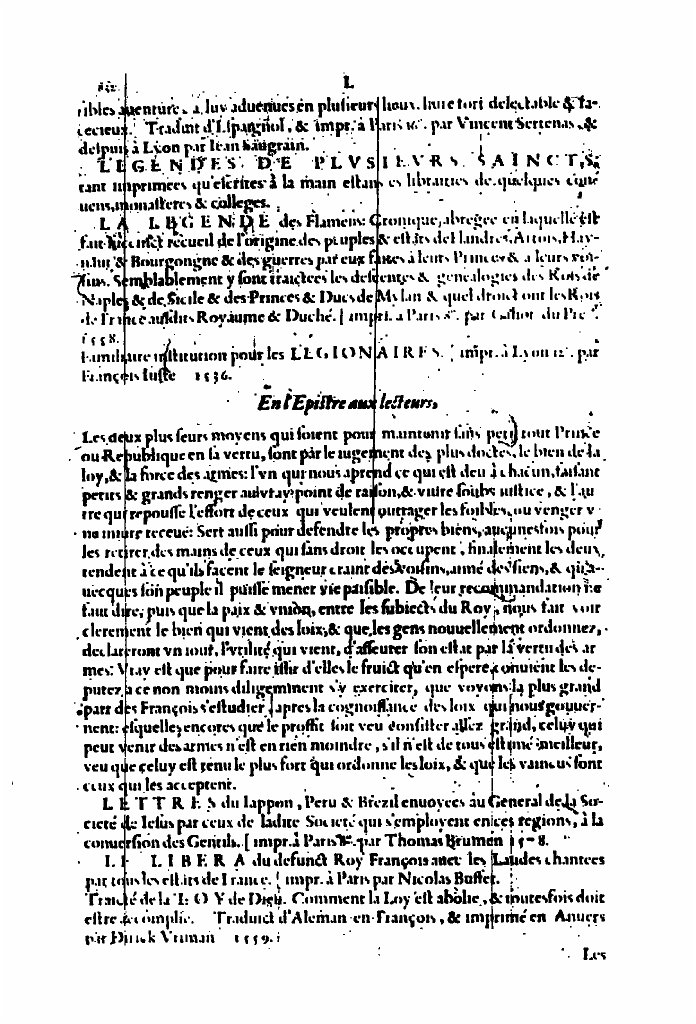 L
ribles auenture, à luy aduenues en plusieurs lieux. liure fort delectable & fa-
cecieux. Traduit d'Espagnol, & impr. à Paris 16°. par Vincent Sertenas, &
despuis à Lyon par Iean Saugrain.
LEGENDES DE PLVSIEVRS SAINCTS,
tant imprimees qu'escrites à la main estans es librairies de quelques conu
uens, monasteres & colleges.
LA LEGENDE des Flamens: Cronique abregee en laquelle est
fait succinct recueil de l'origine des peuples & estats de Flandres, Artois, Hay-
naut & Bourgongne & des guerres par eux faites à leurs Princes & à leurs voi-
sins. Semblablement y sont traictees les descentes & genealogies des Rois de
Naples & de Sicile & des Princes & Ducs de Mylan & quel droict ont les Rois
de France ausdits Royaume & Duché. [impr. à Paris 8°. par Galiot du Pré
1558.
Familiaire institution pour les LEGIONAIRES. [impr. à Lyon 12°. par
François Iuste 1536.
En l'Epistre aux lecteurs,
Les deux plus seurs moyens qui soient pour maintenir sans peril tout Prince
ou Republique en sa vertu, sont par le iugement des plus doctes, le bien de la
loy, & la force des armes: l'vn qui nous aprend ce qui est deu à chacun, faisant
petits & grands renger au vray point de raison, & viure soubs iustice, & l'au
tre qui repousse l'effort de ceux qui veulent outrager les foibles, ou venger v
ne iniure receuë: Sert aussi pour defendre les propres biens, aucunesfois pour
les retirer des mains de ceux qui sans droit les occupent, finalement les deux
tendent à ce qu'ils facent le seigneur craint des voisins, aimé des siens, & qu'a-
uecques son peuple il puisse mener vie paisible. De leur recommandation ne
faut dire, puis que la paix & vnion, entre les subiects du Roy, nous fait voir
clerement le bien qui vient des loix, & que les gens nouuellement ordonnez,
declareront vn iour, l'vtilité qui vient, d'asseurer son estat par la vertu des ar
mes: Vray est que pour faire issir d'elles le fruict qu'en espere, conuient les de-
putez à ce non moins diligemment s'y exerciter, que voyons la plus grand
part des François s'estudier apres la cognoissance des loix qui nous gouuer-
nent: esquelles, encores que le proffit soit veu consister assez grand, celuy qui
peut venir des armes n'est en rien moindre, s'il n'est de tous estimé meilleur,
veu que celuy est tenu le plus fort qui ordonne les loix, & que les vaincus sont
ceux qui les acceptent.
LETTRES du Iappon, Peru & Brezil enuoyees au General de la So-
cieté de Iesus par ceux de ladite Societé qui s'employent en ces regions, à la
conuersion des Gentils. [impr. à Paris 8°. par Thomas Brumen 1578.
LE LIBERA du defunct Roy François auec les Laudes chantees
par tous les estats de France. [impr. à Paris par Nicolas Buffet.
Traicté de la LOY de Dieu. Comment la Loy est abolie, & toutesfois doit
estre acomplie. Traduict d'Aleman en François, & imprimé en Anuers
par Dirick Vriman 1559.
Les